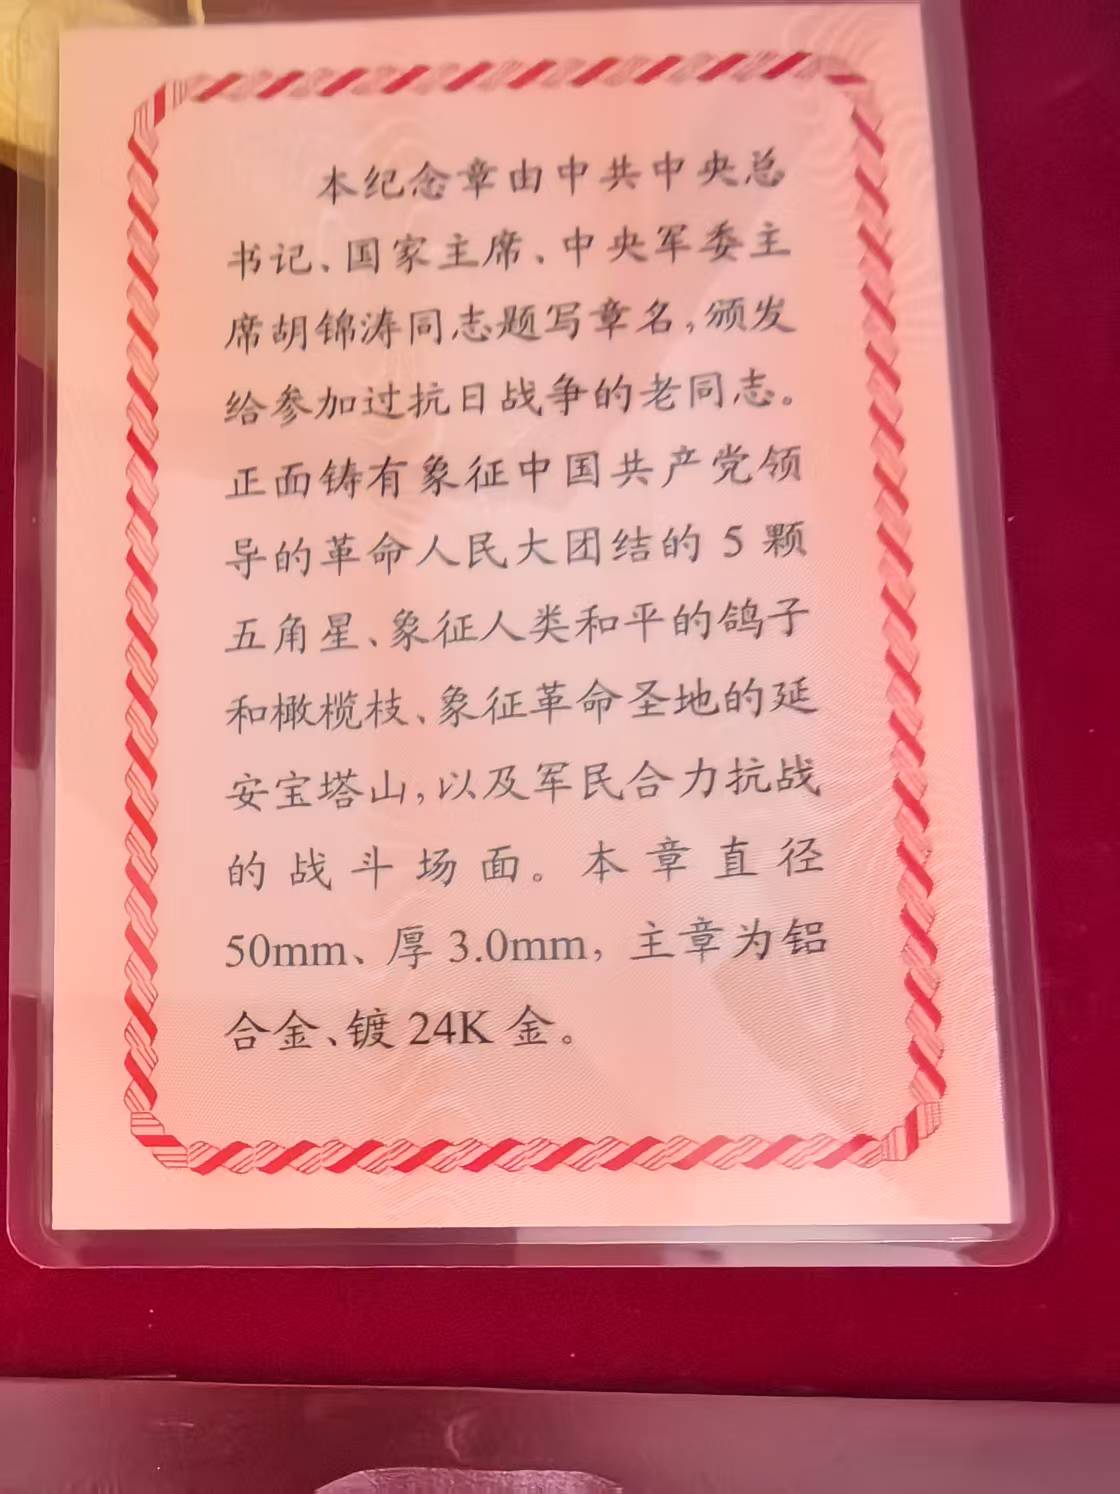 本纪念章由中共中央总
书记、国家主席、中央军委主
席胡锦涛同志题写章名,颁发
给参加过抗日战争的老同志。
正面铸有象征中国共产党领
导的革命人民大团结的5颗
五角星、象征人类和平的鸽子
和橄榄枝、象征革命圣地的延
安宝塔山,以及军民合力抗战
的战斗场面。本章直径
50mm、厚3.0mm,主章为铝
合金、镀24K金。